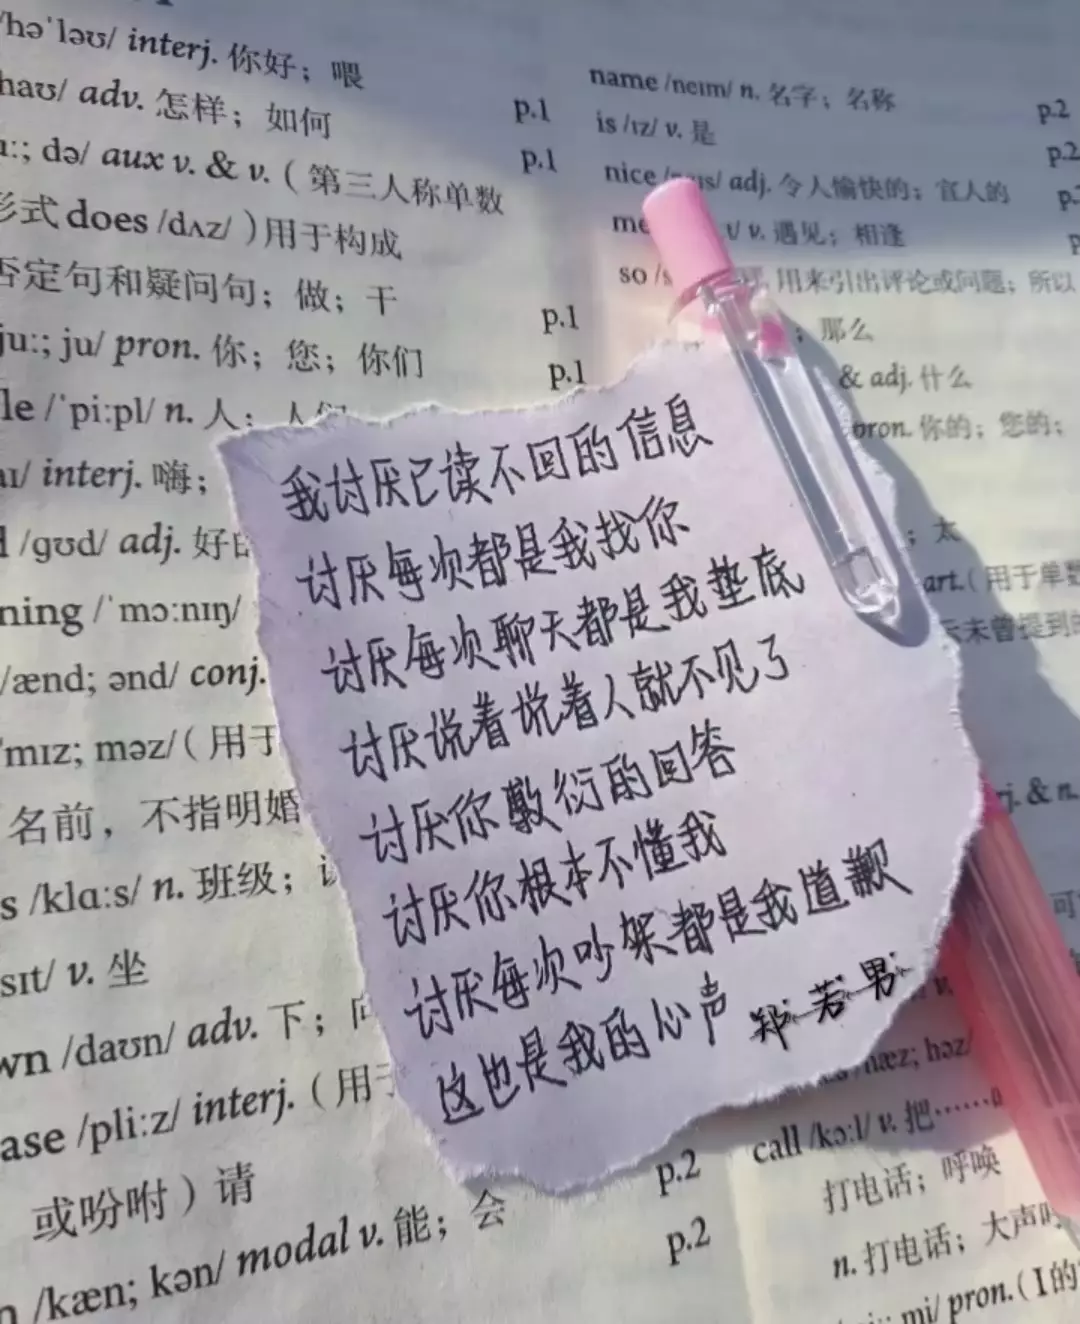 /həˈləʊ/ interj. 你好；喂
p.1
haʊ/ adv. 怎样；如何
p.1
ɑː; də/ aux v. & v.（第三人称单数
形式 does /dʌz/ )用于构成
否定句和疑问句；做；干
p.1
juː; ju/ pron. 你；您；你们
p.1
le /ˈpiːpl/ n. 人；人们
aɪ/ interj. 嗨；
d /ɡʊd/ adj. 好的
ning /ˈmɔːnɪŋ/
/ænd; ənd/ conj.
ˈmɪz; məz/（用于
名前，不指明婚
s /klɑːs/ n. 班级；
sɪt/ v. 坐
wn /daʊn/ adv. 下；向
ase /pliːz/ interj.（用于
或吩咐）请
p.2
n /kæn; kən/ modal v. 能；会
p.2
name /neɪm/ n. 名字；名称
p.2
is /ɪz/ v. 是
p.2
nice /naɪs/ adj. 令人愉快的；宜人的
p.
me t/ v. 遇见；相逢
p
so /s 用来引出评论或问题；所以
；那么
& adj. 什么
pron. 你的；您的；
；太
art.（用于单数
示未曾提到的
我讨厌已读不回的信息
讨厌每次都是我找你
讨厌每次聊天都是我垫底
讨厌说着说着人就不见了
讨厌你敷衍的回答
讨厌你根本不懂我
讨厌每次吵架都是我道歉
这也是我的心声 郑若男
rj. & n.
可
/hæz; həz/
call /kɔːl/ v. 把……
打电话；呼唤
n. 打电话；大声
mi/ pron.（I 的